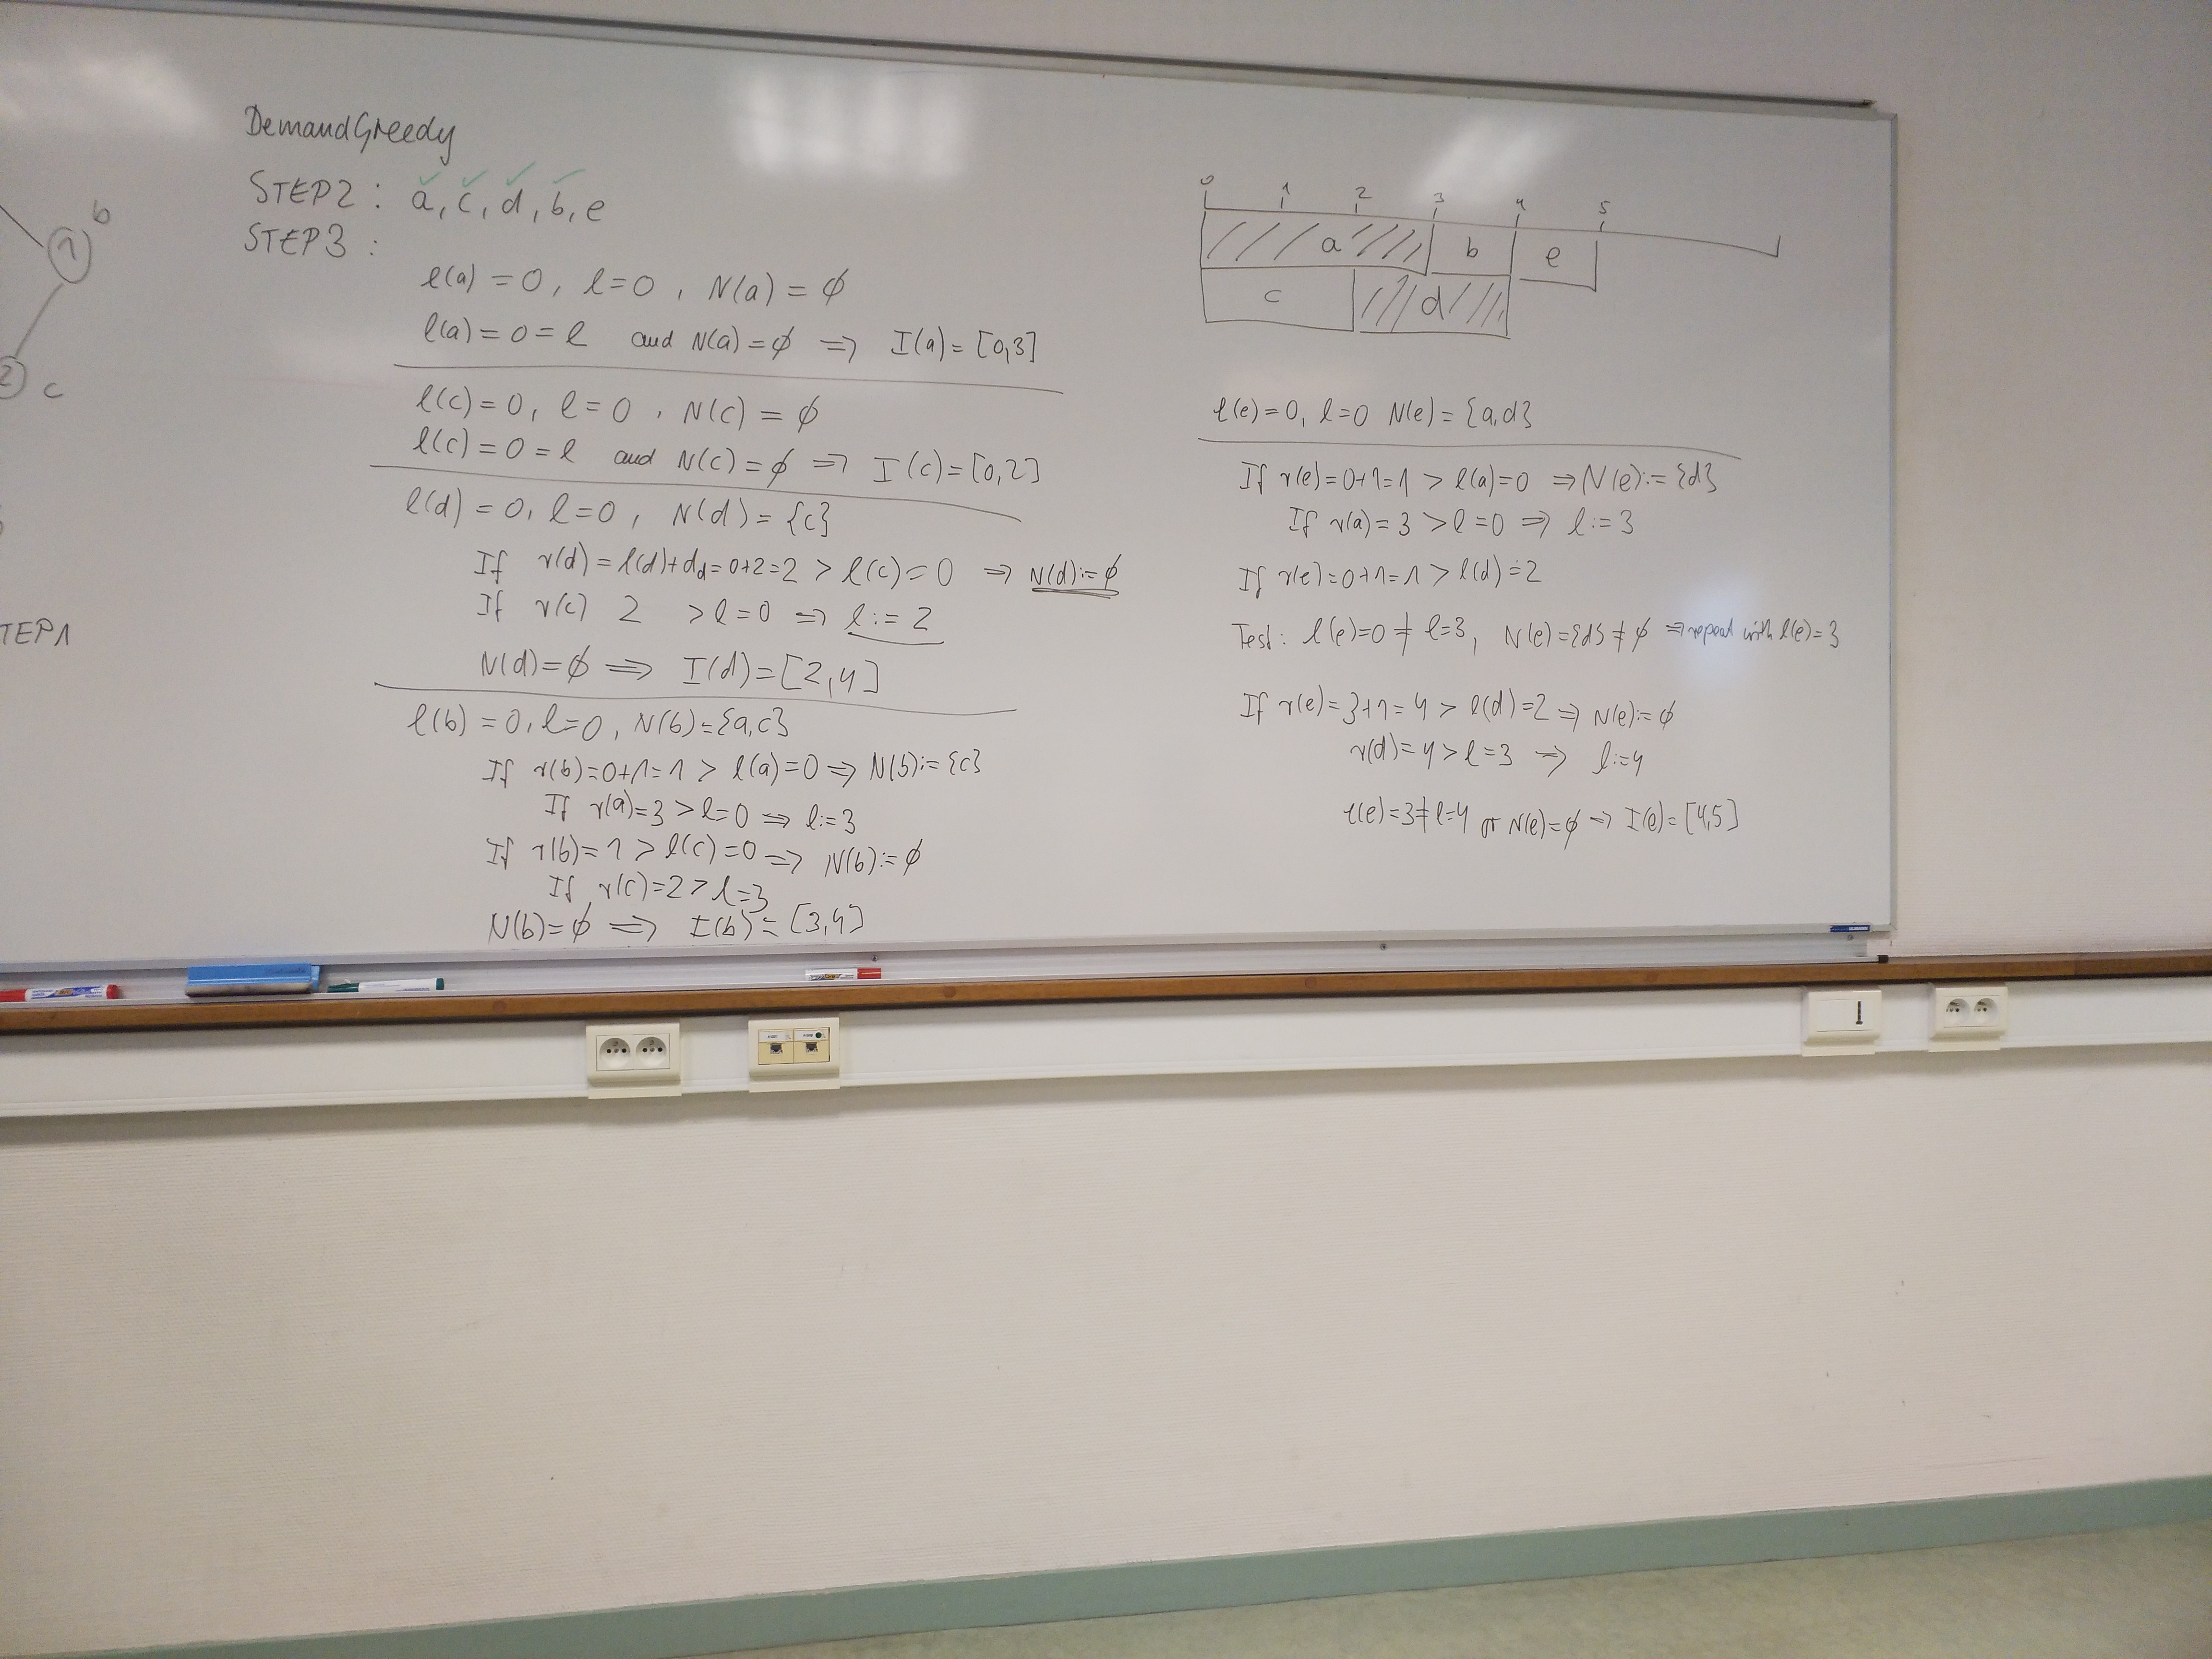 DemandGreedy
STEP2 : a, c, d, b, e
STEP3 :
l(a) = 0, l=0, N(a) = ∅
l(a) = 0 = l and N(a) = ∅ ⇒ I(a) = [0,3]
l(c) = 0, l = 0, N(c) = ∅
l(c) = 0 = l and N(c) = ∅ ⇒ I(c) = [0,2]
l(d) = 0, l=0, N(d) = {c}
If r(d) = l(d)+d_d = 0+2=2 > l(c) = 0 ⇒ N(d):=∅
If r(c) 2 > l=0 ⇒ l:= 2
N(d)=∅ ⇒ I(d) = [2,4]
l(b) = 0, l=0, N(b)={a,c}
If r(b)=0+1=1 > l(a)=0 ⇒ N(b):={c}
If r(a)=3 > l=0 ⇒ l:=3
If r(b)=1 > l(c)=0 ⇒ N(b):=∅
If r(c)=2 > l=3
N(b)=∅ ⇒ I(b) = [3,4]
0 1 2 3 4 5
a b e
c d
l(e)=0, l=0 N(e)={a,d}
If r(e)=0+1=1 > l(a)=0 ⇒ N(e):={d}
If r(a)=3 > l=0 ⇒ l:=3
If r(e)=0+1=1 > l(d)=2
Test: l(e)=0 ≠ l=3, N(e)={d} ≠ ∅ ⇒ repeat with l(e)=3
If r(e)=3+1=4 > l(d)=2 ⇒ N(e):=∅
r(d)=4 > l=3 ⇒ l:=4
l(e)=3≠l=4 or N(e)=∅ ⇒ I(e)=[4,5]
1 b
2 c
TEP1